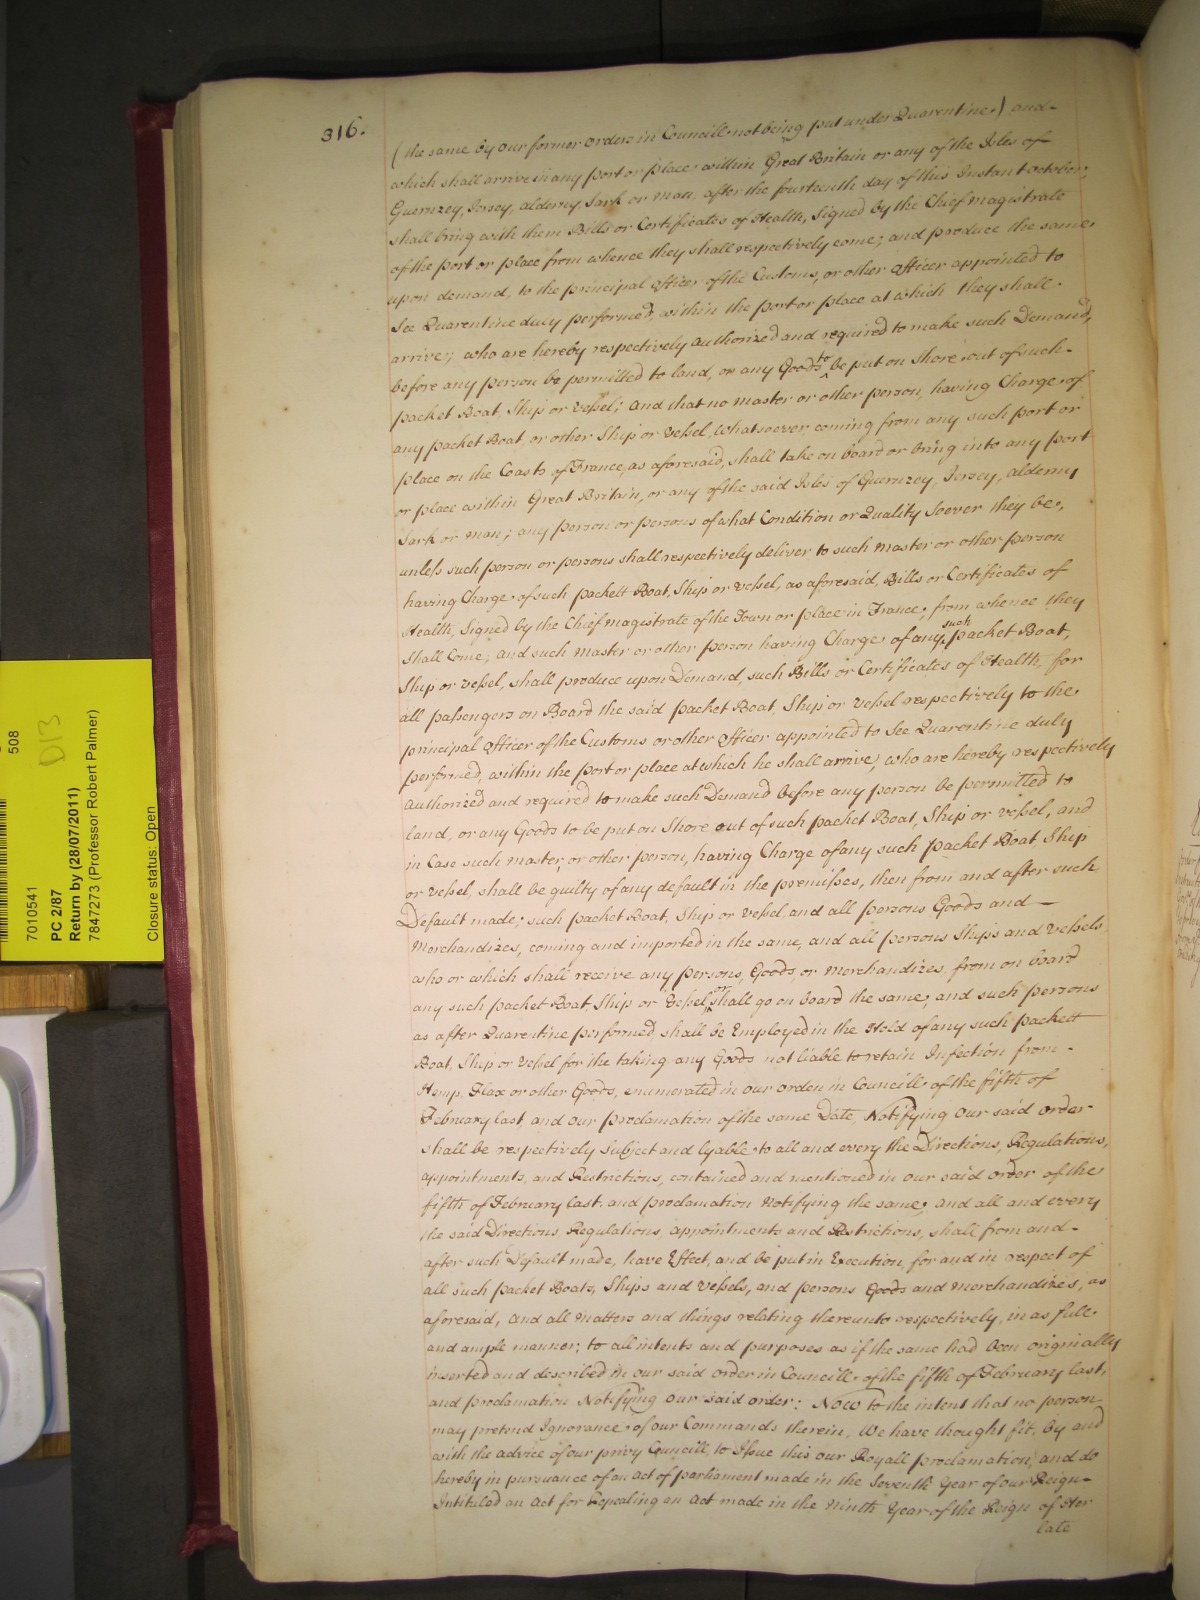 316.
(the same by our former orders in Councill not being put under Quarentine.) and
which shall arrive in any port or place within Great Britain or any of the Isles of
Guernzey, Jersey, alderny Sark or man, after the fourteenth day of this Instant october;
shall bring with them Bills or Certificates of Health, Signed by the Chief magistrate
of the port or place from whence they shall respectively come; and produce the same
upon demand, to the principal officer of the Customs, or other officer appointed to
See Quarentine duly performed, within the port or place at which they shall
arrive; who are hereby respectively authorized and required to make such Demand,
before any person be permitted to land, or any Goods to be put on Shore out of such
packet Boat, Ship or vessel; and that no master or other person, having Charge of
any packet Boat, or other Ship or vessel, whatsoever, coming from any such port or
place on the Coasts of France, as aforesaid, shall take on board or bring into any port
or place within Great Britain, or any of the said Isles of Guernzey, Jersey, alderny
Sark or man; any person or persons of what Condition or Quality Soever they be,
unless such person or persons shall respectively deliver to such master or other person
having Charge of such packett Boat, Ship or vessel, as aforesaid, Bills or Certificates of
Health, Signed by the Chief magistrate of the Town or place in France, from whence they
Shall Come; and such master or other person having Charge of any such packet Boat,
Ship or vessel, shall produce upon Demand, such Bills or Certificates of Health, for
all passengers on Board the said packet Boat, Ship or vessel respectively to the
principal officer of the Customs or other officer appointed to See Quarentine duly
performed, within the port or place at which he shall arrive, who are hereby respectively
authorized and required to make such Demand before any person be permitted to
land, or any Goods to be put on Shore out of such packet Boat, Ship or vessel, and
in Case such master, or other person, having Charge of any such packet Boat, Ship
or vessel, shall be guilty of any default in the premisses, then from and after such
Default made; such packet Boat, Ship or vessel, and all persons Goods and
Merchandizes, coming and imported in the same, and all persons Ships and vessels,
who or which shall receive any persons, Goods, or merchandizes, from on board
any such packet Boat, Ship or vessel, or shall go on board the same; and such persons
as after Quarentine performed, shall be Employed in the Hold of any such packett
Boat, Ship or vessel for the taking any Goods not liable to retain Infection from
Hemp, Flax or other Goods, enumerated in our order in Councill of the fifth of
February last, and our proclamation of the same Date, Notifying our said order
shall be respectively Subject and lyable to all and every the Directions, Regulations,
appointments, and Restrictions, contained and mentioned in our said order of the
fifth of February last, and proclamation Notifying the same; and all and every
the said Directions, Regulations, appointments and Restrictions, shall from and
after such Default made, have Effect, and be put in Execution, for and in respect of
all such packet Boats, Ships and vessels, and persons Goods and merchandizes, as
aforesaid, and all matters and things relating thereunto respectively, in as full
and ample manner; to all intents and purposes as if the same had been originally
inserted and described in our said order in Councill of the fifth of February last,
and proclamation Notifying our said order: Now to the intent that no person
may pretend Ignorance of our Commands therein, We have thought fit, by and
with the advice of our privy Councill, to Issue this our Royall proclamation, and do
hereby in pursuance of an act of parliament made in the Seventh Year of our Reign
Intituled an act for Repealing an act made in the ninth Year of the Reign of Her
late
508
D13
7010541
PC 2/87
Return by (28/07/2011)
7847273 (Professor Robert Palmer)
Closure status: Open